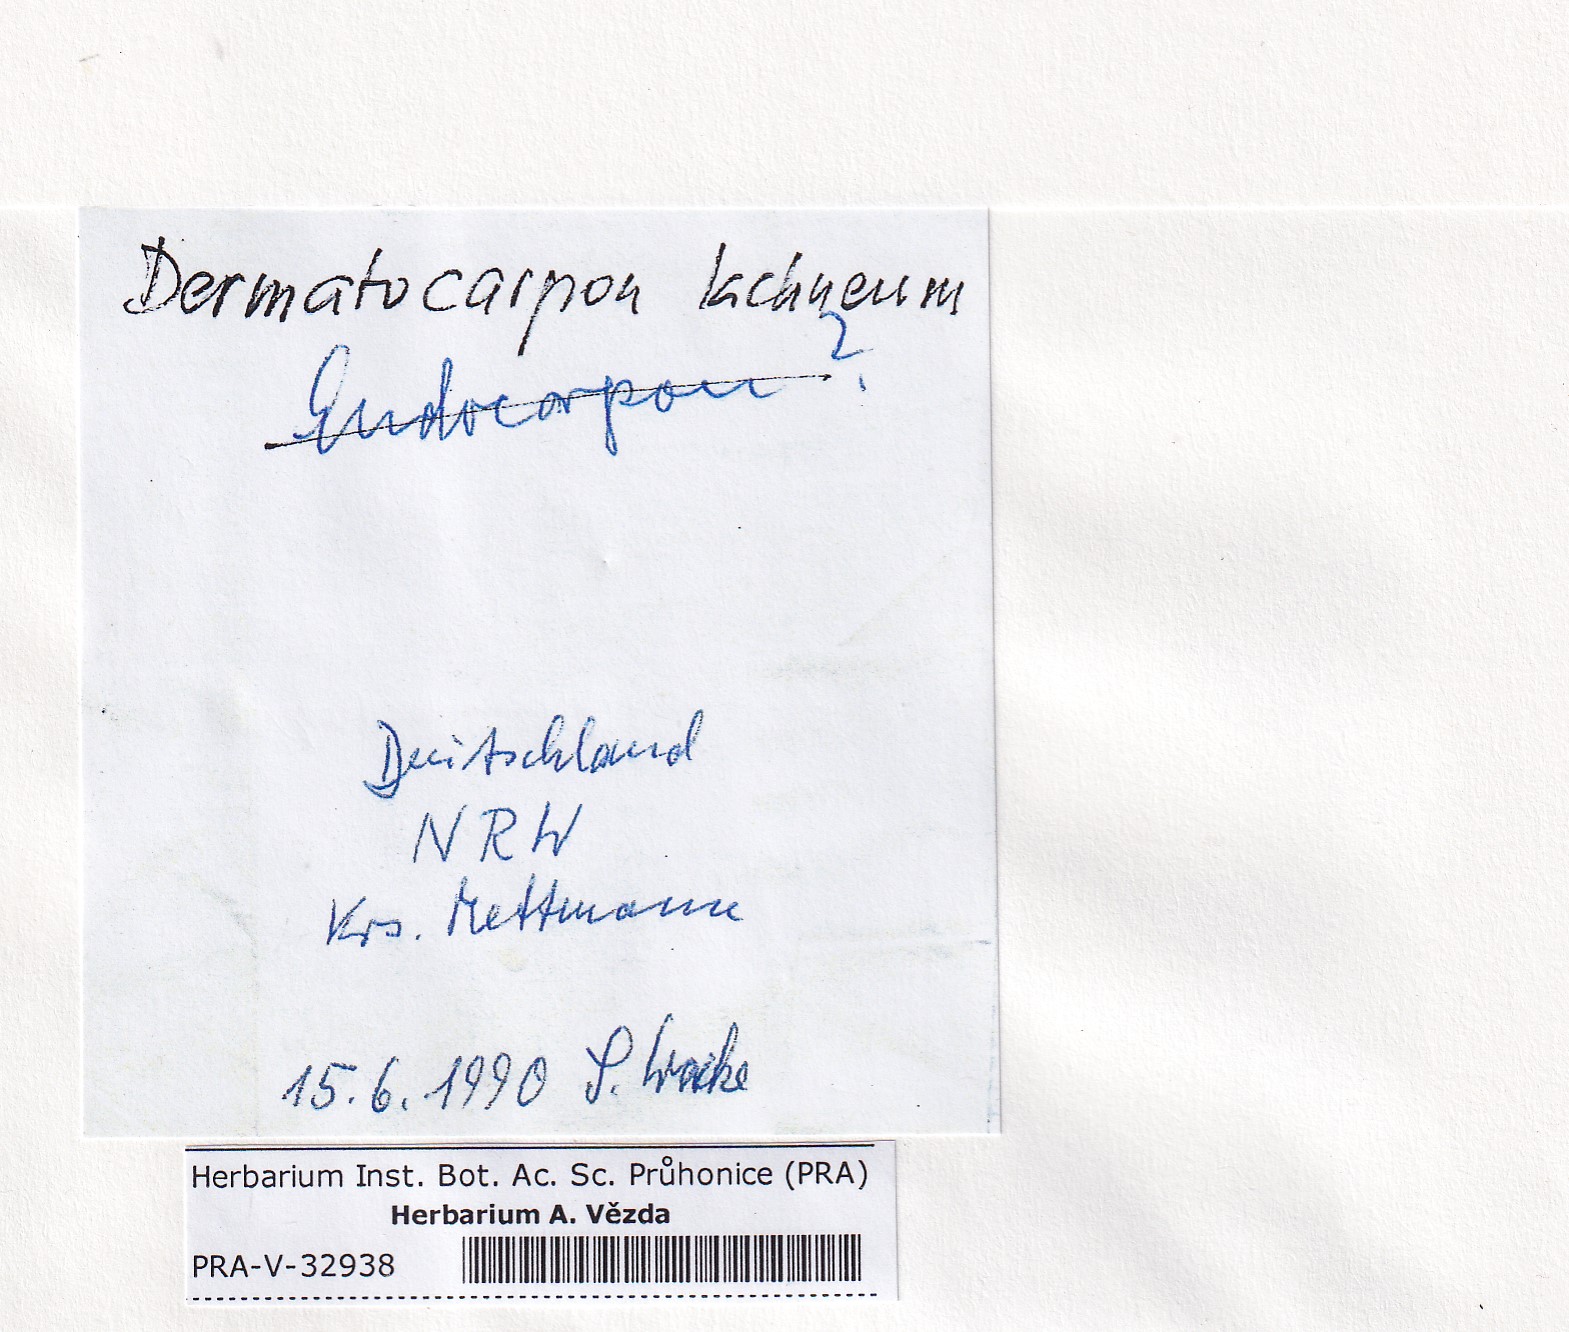 Dermatocarpon lachneum
Endocarpon ?
Deutschland
NRW
Krs. Mettmann
15.6.1990 S. Woike
Herbarium Inst. Bot. Ac. Sc. Průhonice (PRA)
Herbarium A. Vězda
PRA-V-32938